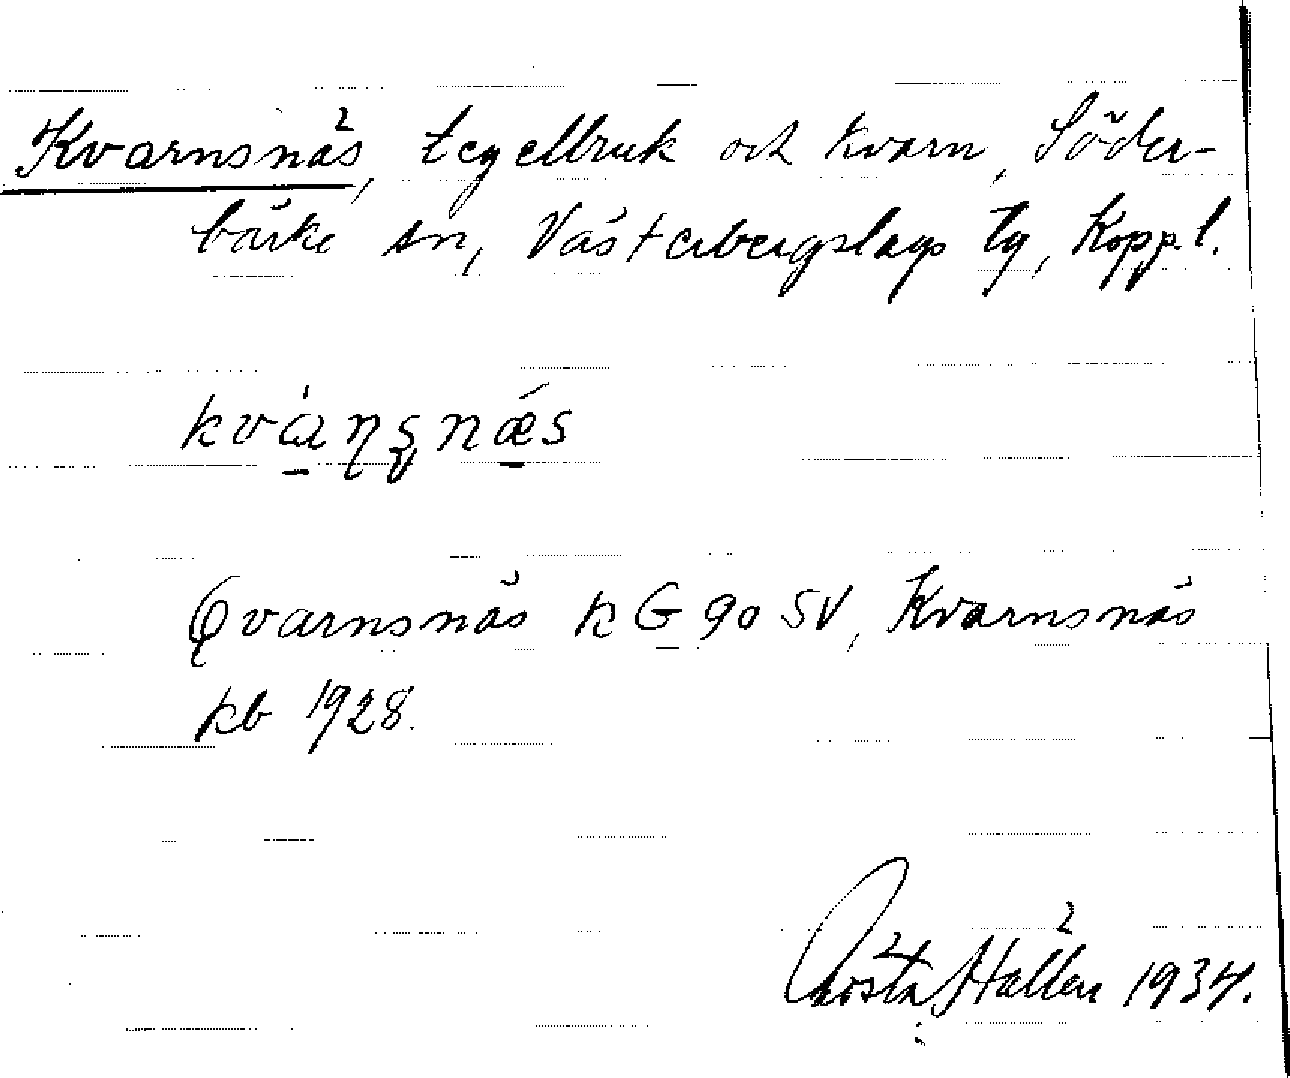 Kvarnsnäs, tegelbruk och kvarn, Söder-
bärke sn, Västerbergslags tg, Koppl.
Qvarnsnäs k G 90 SV, Kvarnsnäs
kb 1928.
Gösta Hallén 1934.